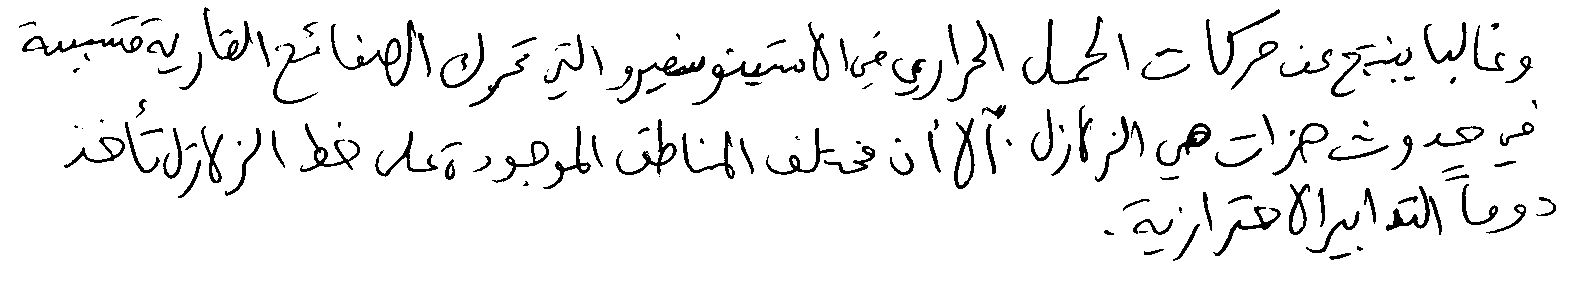 وغالبا ينتج عن حركات الحمل الحراري في الاستينوسفيرو التي تحرك الصفائح القارية متسببة
في حدوث هزات هي الزلازل . آلا أن مختلف المناطق الموجودة على خط الزلازل تأخذ
دوماً التدابير الاحترازية .